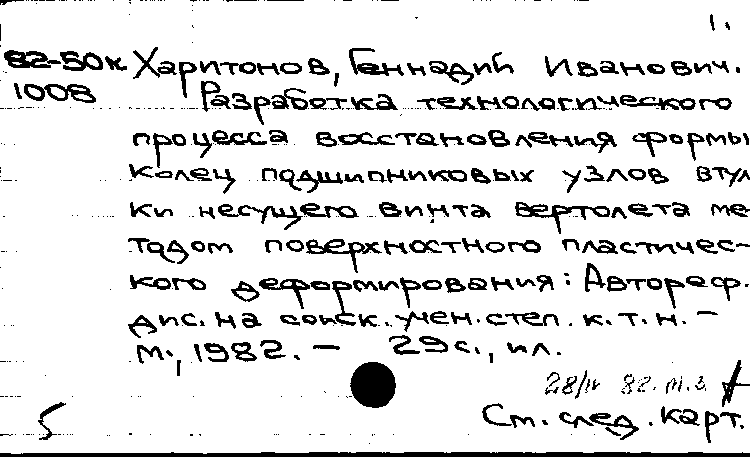 1.
82-50к Харитонов, Геннадий Иванович.
1008 Разработка технологического
процесса восстановления формы
колец подшипниковых узлов втул
ки несущего винта вертолета ме-
тодом поверхностного пластичес-
кого деформирования: Автореф.
дис. на соиск. учен. степ. к. т. н. -
М., 1982. - 29 с., ил.
28/IV 82. т.з.
5 См. след. карт.